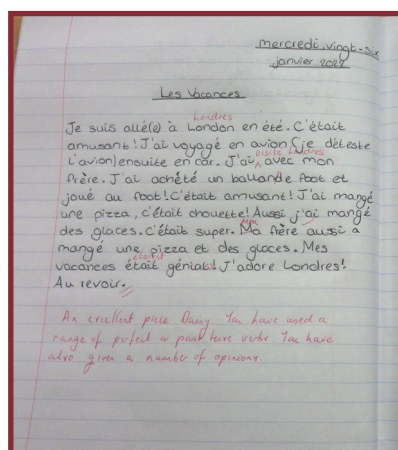 mercredi, vingt-six
janvier 2022
Les Vacances
Londres
Je suis allé(e) à London en été. C'était
amusant! J'ai voyagé en avion (je déteste
visité Londres
l'avion) ensuite en car. J'ai avec mon
frère. J'ai achété un ballon de foot et
joué au foot! C'était amusant! J'ai mangé
une pizza, c'était chouette! Aussi j'ai mangé
Mon
des glaces. C'était super. Ma frère aussi a
mangé une pizza et des glaces. Mes
étaient
vacances était génial! J'adore Londres!
Au revoir.
An excellent piece Daisy. You have used a
range of perfect or past tense verbs. You have
also given a number of opinions.